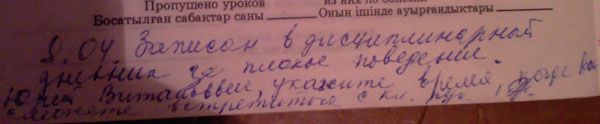 Пропущено уроков из них по болезни
Босатылған сабақтар саны Оның ішінде ауырғандықтары
Записан в дисциплинарный
дневник за плохое поведение.
Юрий Витальевич, укажите время, когда Вы
сможете встретиться с кл. рук.